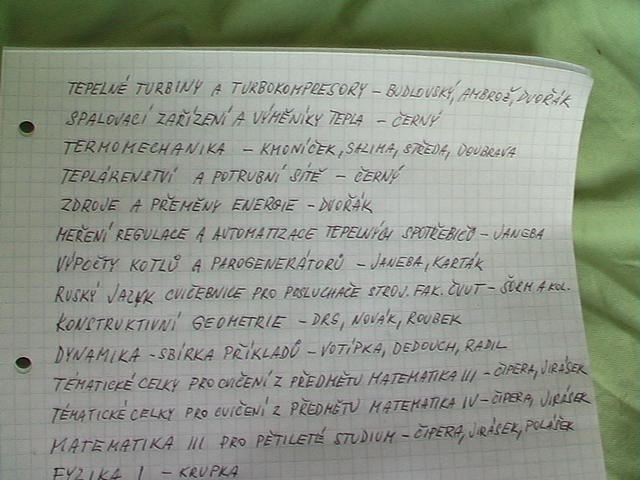 TEPELNÉ TURBINY A TURBOKOMPRESORY – BUDLOVSKÝ, AMBROŽ, DVOŘÁK
SPALOVACÍ ZAŘÍZENÍ A VÝMĚNÍKY TEPLA – ČERNÝ
TERMOMECHANIKA – KMONÍČEK, SAZIMA, STŘEDA, DOUBRAVA
TEPLÁRENSTVÍ A POTRUBNÍ SÍTĚ – ČERNÝ
ZDROJE A PŘEMĚNY ENERGIE – DVOŘÁK
MĚŘENÍ REGULACE A AUTOMATIZACE TEPELNÝCH SPOTŘEBIČŮ – JANEBA
VÝPOČTY KOTLŮ A PAROGENERÁTORŮ – JANEBA, KARTÁK
RUSKÝ JAZYK CVIČEBNICE PRO POSLUCHAČE STROJ. FAK. ČVUT – ŠORM A KOL.
KONSTRUKTIVNÍ GEOMETRIE – DRS, NOVÁK, ROUBEK
DYNAMIKA – SBÍRKA PŘÍKLADŮ – VOTÍPKA, DEDOUCH, RADIL
TÉMATICKÉ CELKY PRO CVIČENÍ Z PŘEDMĚTU MATEMATIKA III – ČIPERA, JIRÁSEK
TÉMATICKÉ CELKY PRO CVIČENÍ Z PŘEDMĚTU MATEMATIKA IV – ČIPERA, JIRÁSEK
MATEMATIKA III PRO PĚTILETÉ STUDIUM – ČIPERA, JIRÁSEK, POLÁŠEK
FYZIKA I – KRUPKA